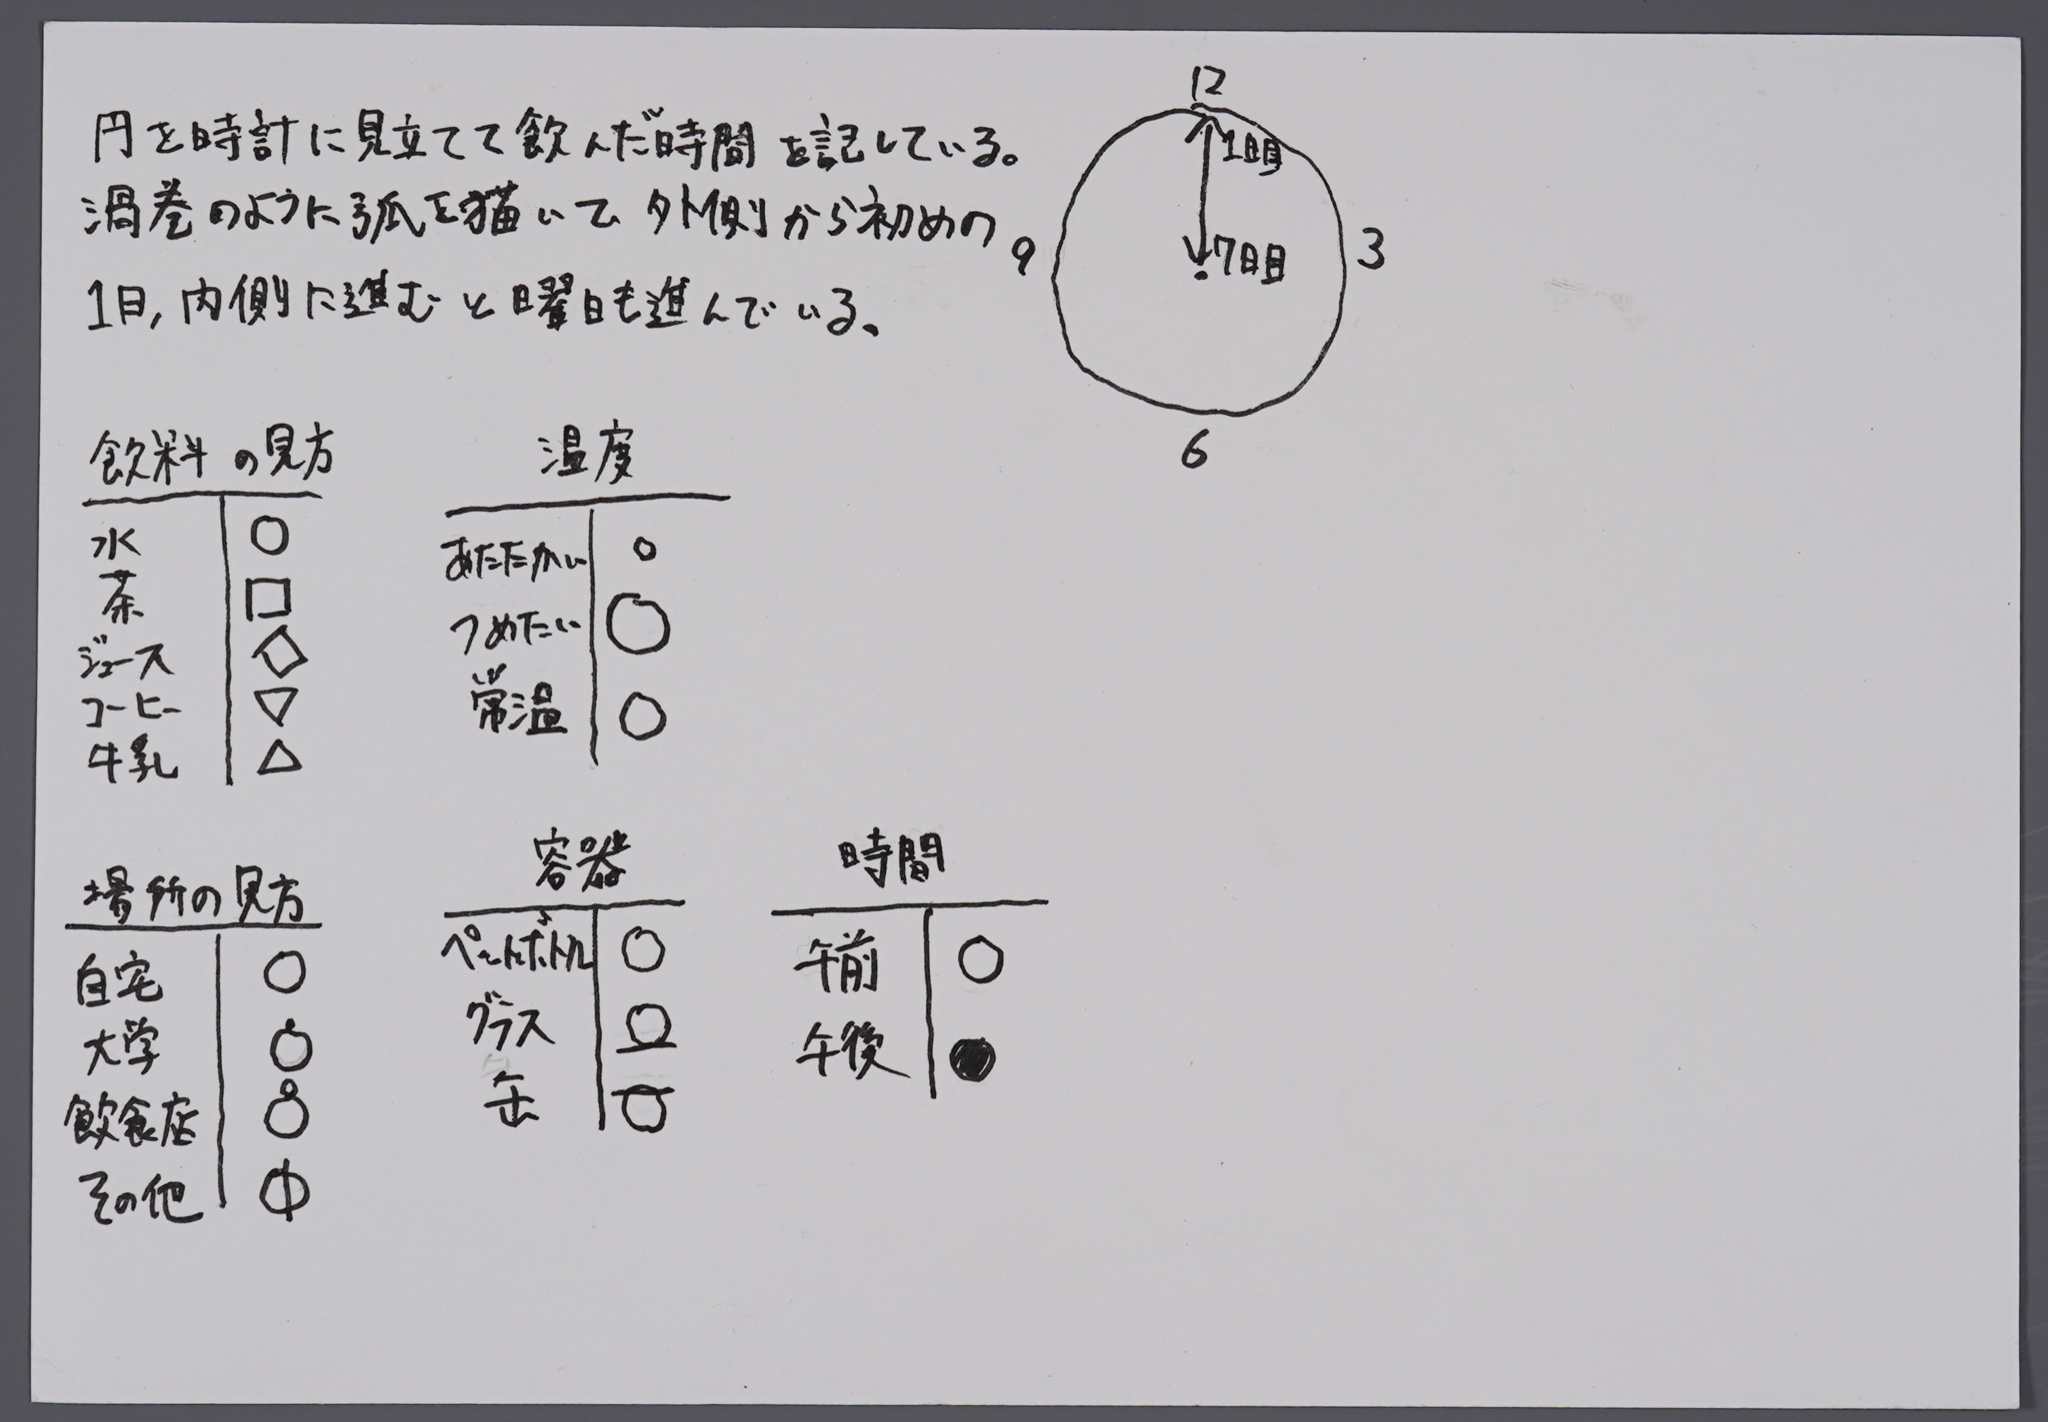 円を時計に見立てて飲んだ時間を記している。
渦巻のように弧を描いて外側から初めの
1日,内側に進むと曜日も進んでいる。
12
1日目
7日目
9
3
6
飲料の見方
水
茶
ジュース
コーヒー
牛乳
温度
あたたかい
つめたい
常温
場所の見方
自宅
大学
飲食店
その他
容器
ペットボトル
グラス
缶
時間
午前
午後